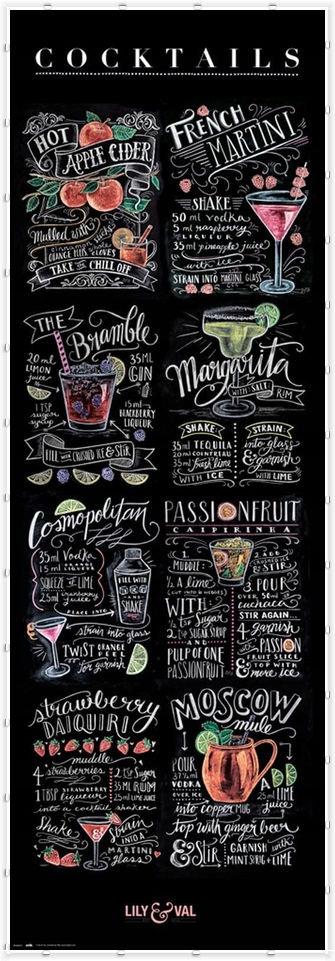 COCKTAILS
HOT
APPLE CIDER
Mulled with
cinnamon sticks
ORANGE PEEL & whole CLOVES
TAKE the CHILL OFF
FRENCH
MARTINI
SHAKE
50 ml vodka
5 ml raspberry
LIQUEUR
35ml pineapple juice
with ice
STRAIN INTO MARTINI GLASS
THE
Bramble
20 ml
LIMON
juice
35ML
GIN
1 TSP
sugar
syrup
15ml
BLACKBERRY
LIQUEUR
FILL WITH CRUSHED ICE & STIR
Margarita
WITH SALT RIM
SHAKE
35ml TEQUILA
20ml COINTREAU
35ml fresh lime
WITH ICE
STRAIN
into glass
& garnish
WITH LIME
Cosmopolitan
35ml Vodka
15 ml
SQUEEZE OF LIME
25ml cranberry
juice
PLACE INTO
FILL WITH
AND
SHAKE
strain into glass
TWIST ORANGE
PEEL
for garnish
PASSIONFRUIT
CAIPIRINHA
1
MUDDLE
1/2 a lime
(CUT INTO WEDGES)
WITH
1/2 tsp Sugar
2 tsp SUGAR SYRUP
AND
PULP OF ONE
PASSIONFRUIT
2 ADD
CRUSHED ICE
& STIR
3 POUR
over 50ml
cachaca
STIR AGAIN...
4 garnish
with PASSION
FRUIT SLICE
& TOP WITH
more ice
strawberry
DAIQUIRI
muddle
4 strawberries
1 TBSP STRAWBERRY
liqueur
2 tsp Sugar
35ml RUM
25ml LIME JUICE
into a cocktail shaker
Shake
&
Strain
INTO A
MARTINI
glass
MOSCOW
mule
POUR
37½ ml
VODKA
OVER ICE
ADD
25 ml
LIME
juice
into COPPER MUG
top with ginger beer
& Stir
GARNISH with
MINT SPRIG + LIME
LILY & VAL